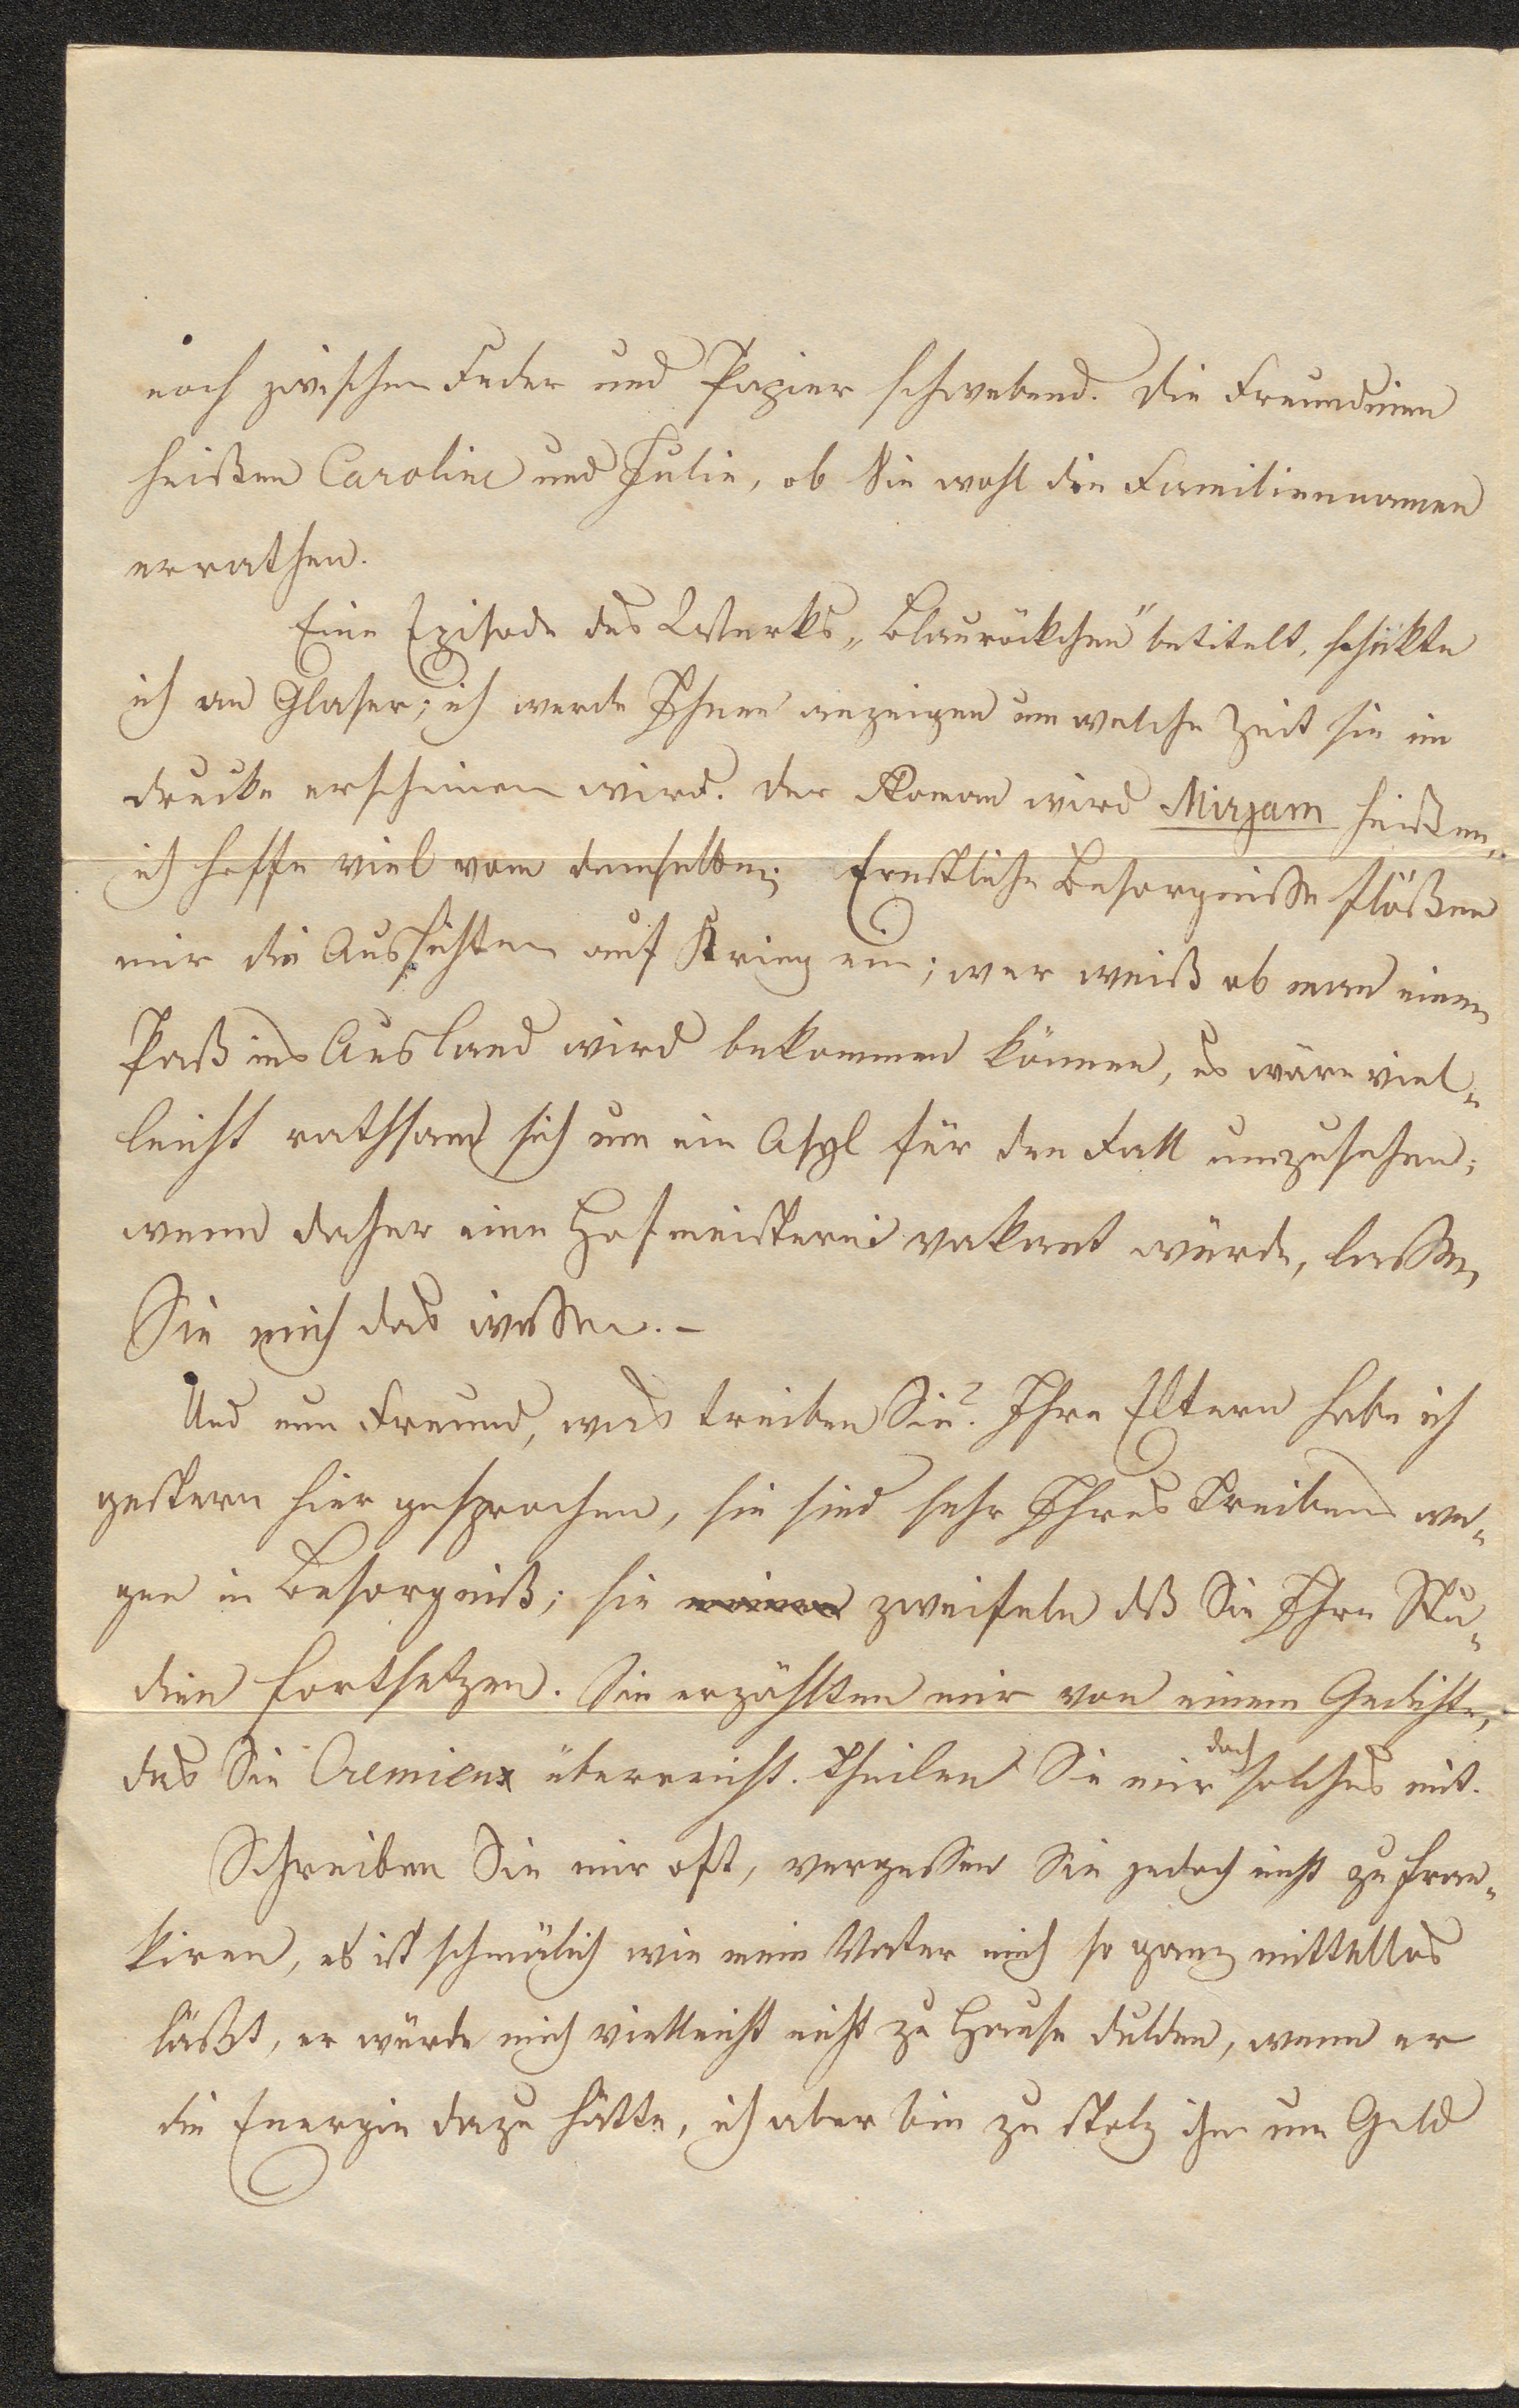 noch zwischen Feder und Papier schwebend. Die Freundinen
heißen Caroline und Julie, ob Sie wohl die Familiennamen
errathen.
Eine Episode des Werks „Blauröckchen" betitelt, schikte
ich an Glaser; ich werde Ihnen anzeigen um welche Zeit sie im
Drucke erscheinen wird. Der Roman wird Mirjam heißen,
ich hoffe viel vom demselben; Ernstliche Besorgnisse flößen
mir die Aussichten auf Krieg ein; wer weiß ob man einen
Paß ins Ausland wird bekommen können, es wäre viel-
leicht rathsam sich um ein Asyl für den Fall umzusehen;
wenn daher eine Hofmeisterei vakant würde, lassen
Sie mich das wissen. –
Und nun Freund, was treiben Sie? Ihre Eltern habe ich
gestern hier gesprochen, sie sind sehr Ihres Treibens we-
gen in Besorgniß; sie zweifeln dß Sie Ihre Stu-
dien fortsetzen. Sie erzählten mir von einem Gedichte,
das Sie Cremieux überreicht. Theilen Sie mir doch solches mit.
Schreiben Sie mir oft, vergessen Sie jedoch nicht zu fran-
kiren, es ist schmälich wie mein Vater mich so ganz mittellos
läßt, er würde mich vielleicht nicht zu Hause dulden, wenn er
die Energie dazu hätte, ich aber bin zu stolz ihn um Geld